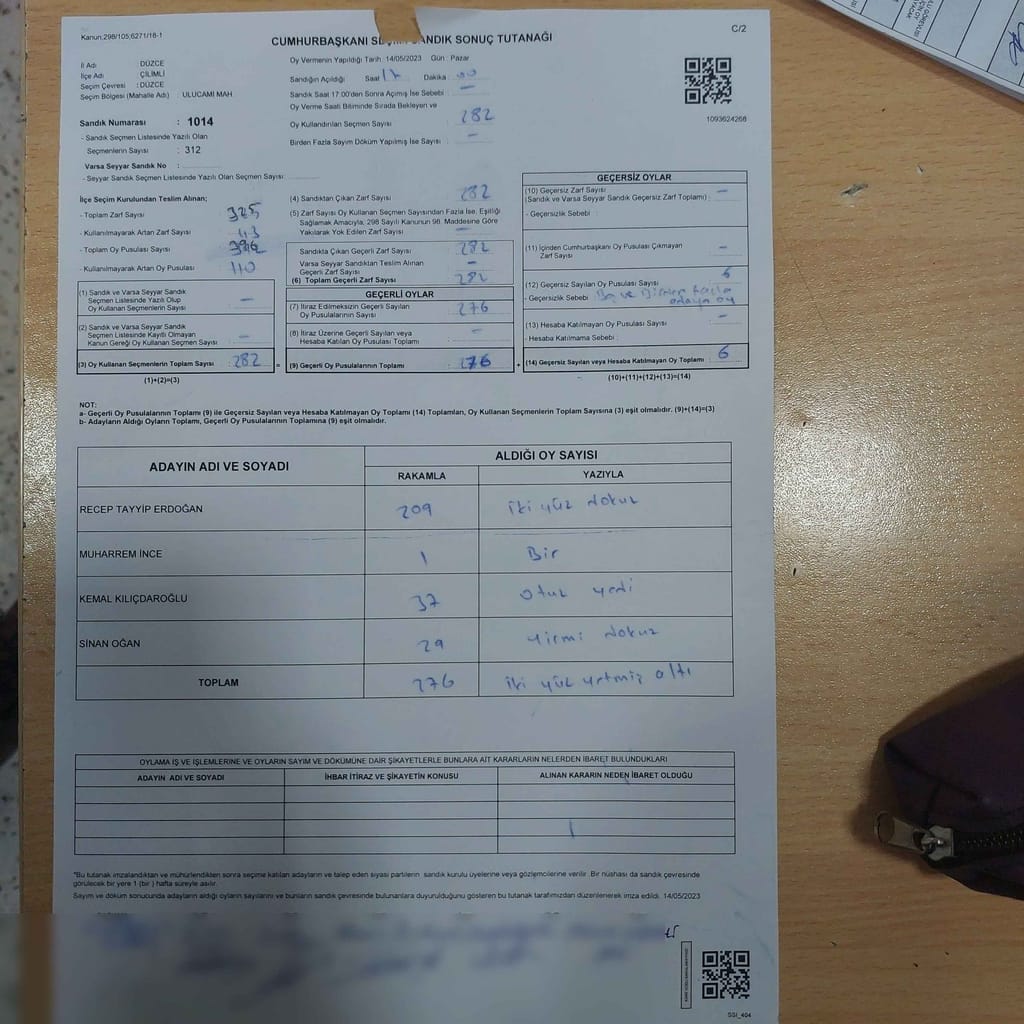 Kanun;298/105;6271/18-1
C/2
CUMHURBAŞKANI SANDIK SONUÇ TUTANAĞI
İl Adı : DÜZCE
İlçe Adı : ÇİLİMLİ
Seçim Çevresi : DÜZCE
Seçim Bölgesi (Mahalle Adı) : ULUCAMİ MAH
Oy Vermenin Yapıldığı Tarih :14/05/2023 Gün : Pazar
Sandığın Açıldığı Saat 17 Dakika 00
Sandık Saat 17:00'den Sonra Açılmış İse Sebebi : —
Oy Verme Saati Bitiminde Sırada Bekleyen ve
Oy Kullandırılan Seçmen Sayısı : 282
Birden Fazla Sayım Döküm Yapılmış İse Sayısı : —
1093624268
Sandık Numarası : 1014
- Sandık Seçmen Listesinde Yazılı Olan
Seçmenlerin Sayısı : 312
Varsa Seyyar Sandık No :
- Seyyar Sandık Seçmen Listesinde Yazılı Olan Seçmen Sayısı:
İlçe Seçim Kurulundan Teslim Alınan;
- Toplam Zarf Sayısı : 325
- Kullanılmayarak Artan Zarf Sayısı : 43
- Toplam Oy Pusulası Sayısı :
- Kullanılmayarak Artan Oy Pusulası : 110
(1) Sandık ve Varsa Seyyar Sandık
Seçmen Listesinde Yazılı Olup
Oy Kullanan Seçmenlerin Sayısı : —
(2) Sandık ve Varsa Seyyar Sandık
Seçmen Listesinde Kayıtlı Olmayan
Kanun Gereği Oy Kullanan Seçmen Sayısı : —
(3) Oy Kullanan Seçmenlerin Toplam Sayısı : 282
(1)+(2)=(3)
(4) Sandıktan Çıkan Zarf Sayısı : 282
(5) Zarf Sayısı Oy Kullanan Seçmen Sayısından Fazla İse, Eşitliği
Sağlamak Amacıyla, 298 Sayılı Kanunun 98. Maddesine Göre
Yakılarak Yok Edilen Zarf Sayısı : —
Sandıkta Çıkan Geçerli Zarf Sayısı : 282
Varsa Seyyar Sandıktan Teslim Alınan
Geçerli Zarf Sayısı : —
(6) Toplam Geçerli Zarf Sayısı : 282
GEÇERLİ OYLAR
(7) İtiraz Edilmeksizin Geçerli Sayılan
Oy Pusulalarının Sayısı : 276
(8) İtiraz Üzerine Geçerli Sayılan veya
Hesaba Katılan Oy Pusulası Toplamı : —
= (9) Geçerli Oy Pusulalarının Toplamı : 276 +
GEÇERSİZ OYLAR
(10) Geçersiz Zarf Sayısı : —
(Sandık ve Varsa Seyyar Sandık Geçersiz Zarf Toplamı)
- Geçersizlik Sebebi :
(11) İçinden Cumhurbaşkanı Oy Pusulası Çıkmayan
Zarf Sayısı : —
(12) Geçersiz Sayılan Oy Pusulası Sayısı : 6
- Geçersizlik Sebebi : Boş ve Birden fazla
adaya oy
(13) Hesaba Katılmayan Oy Pusulası Sayısı : —
- Hesaba Katılmama Sebebi :
(14) Geçersiz Sayılan veya Hesaba Katılmayan Oy Toplamı : 6
(10)+(11)+(12)+(13)=(14)
NOT:
a- Geçerli Oy Pusulalarının Toplamı (9) ile Geçersiz Sayılan veya Hesaba Katılmayan Oy Toplamı (14) Toplamları, Oy Kullanan Seçmenlerin Toplam Sayısına (3) eşit olmalıdır. (9)+(14)=(3)
b- Adayların Aldığı Oyların Toplamı, Geçerli Oy Pusulalarının Toplamına (9) eşit olmalıdır.
ADAYIN ADI VE SOYADI ALDIĞI OY SAYISI
RAKAMLA YAZIYLA
RECEP TAYYİP ERDOĞAN 209 iki yüz dokuz
MUHARREM İNCE 1 Bir
KEMAL KILIÇDAROĞLU 37 otuz yedi
SİNAN OĞAN 29 yirmi dokuz
TOPLAM 276 iki yüz yetmiş altı
OYLAMA İŞ VE İŞLEMLERİNE VE OYLARIN SAYIM VE DÖKÜMÜNE DAİR ŞİKAYETLERLE BUNLARA AİT KARARLARIN NELERDEN İBARET BULUNDUKLARI
ADAYIN ADI VE SOYADI İHBAR İTİRAZ VE ŞİKAYETİN KONUSU ALINAN KARARIN NEDEN İBARET OLDUĞU
*Bu tutanak imzalandıktan ve mühürlendikten sonra seçime katılan adayların ve talep eden siyasi partilerin sandık kurulu üyelerine veya gözlemcilerine verilir. Bir nüshası da sandık çevresinde
görülecek bir yere 1 (bir ) hafta süreyle asılır.
Sayım ve döküm sonucunda adayların aldığı oyların sayılarını ve bunların sandık çevresinde bulunanlara duyurulduğunu gösteren bu tutanak tarafımızdan düzenlenerek imza edildi. 14/05/2023
SSI_404